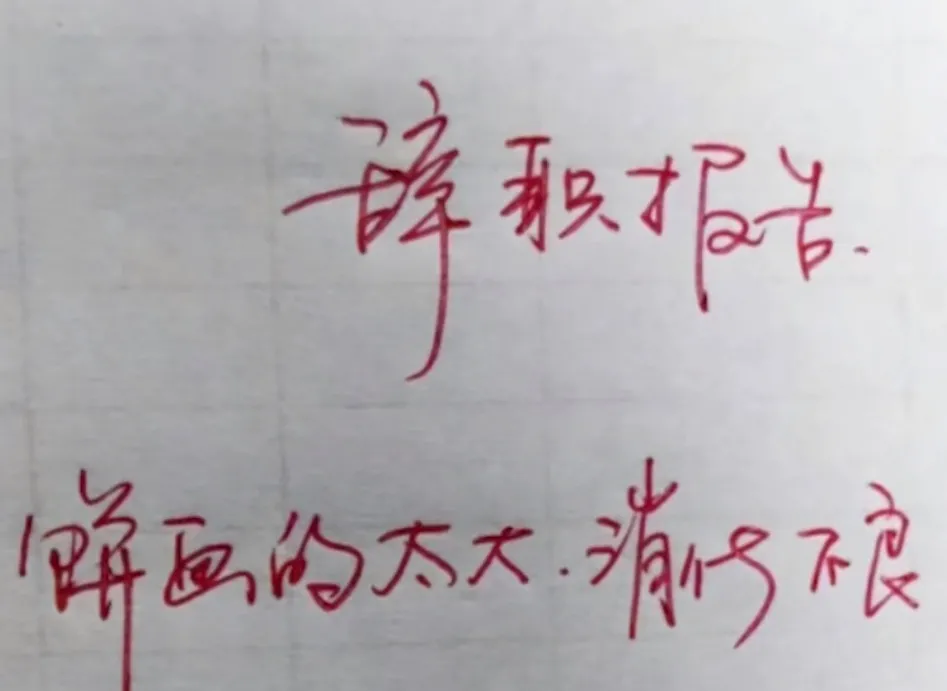 辞职报告.
饼画的太大.消化不良